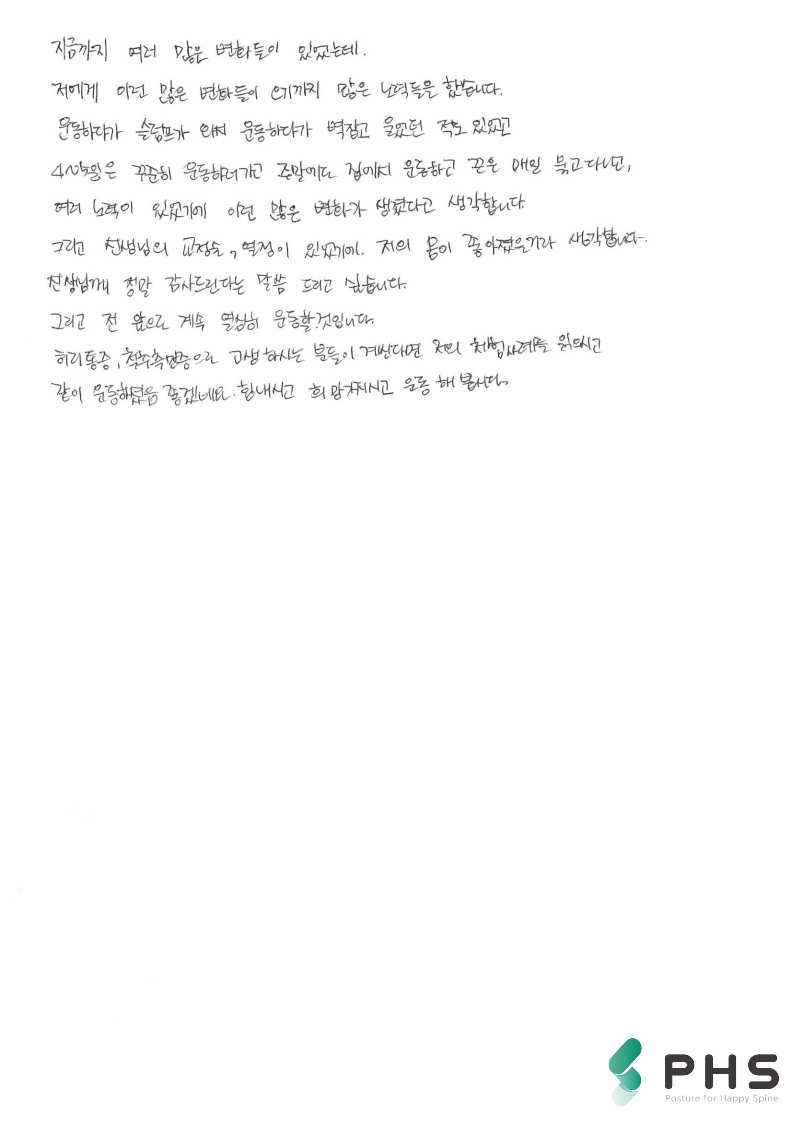 지금까지 여러 많은 변화들이 있었는데.
저에게 이런 많은 변화들이 오기까지 많은 노력들을 했습니다.
운동하다가 슬럼프가 와서 운동하다가 벽잡고 울었던 적도 있었고
4~5일은 꾸준히 운동하러가고 주말에도 집에서 운동하고 끈은 매일 묶고다니고,
여러 노력이 있었기에 이런 많은 변화가 생겼다고 생각합니다.
그리고 선생님의 교정술, 열정이 있었기에. 저의 몸이 좋아졌을거라 생각합니다.
선생님께 정말 감사드린다는 말씀 드리고 싶습니다.
그리고 전 앞으로 계속 열심히 운동할것입니다.
허리통증, 척추측만증으로 고생하시는 분들이 계신다면 저의 체험사례를 읽으시고
같이 운동하셨음 좋겠네요. 힘내시고 희망가지시고 운동 해 봅시다.
PHS
Posture for Happy Spine